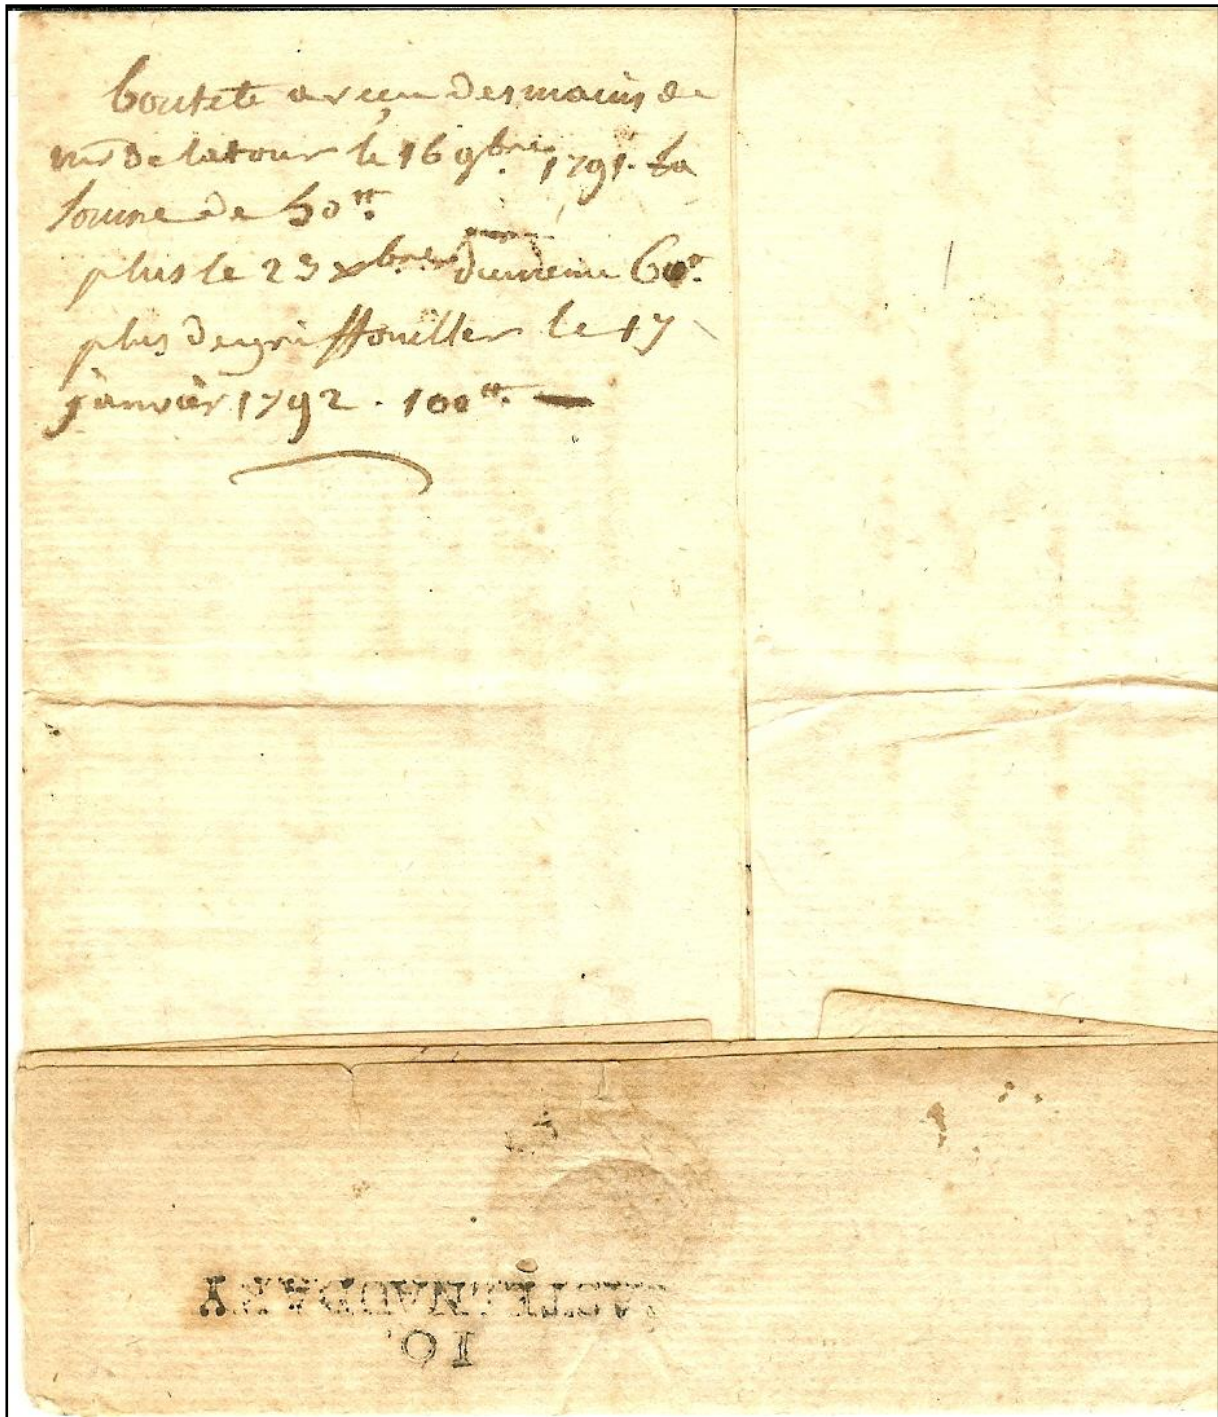 boutete a reçu des mains de
mr de latour le 16 9bre 1791. la
somme de 50tt.
plus le 23 xbre du meme 60tt.
plus de griffouiller le 17
janvier 1792. 100tt.
10.
CASTELNAUDARY